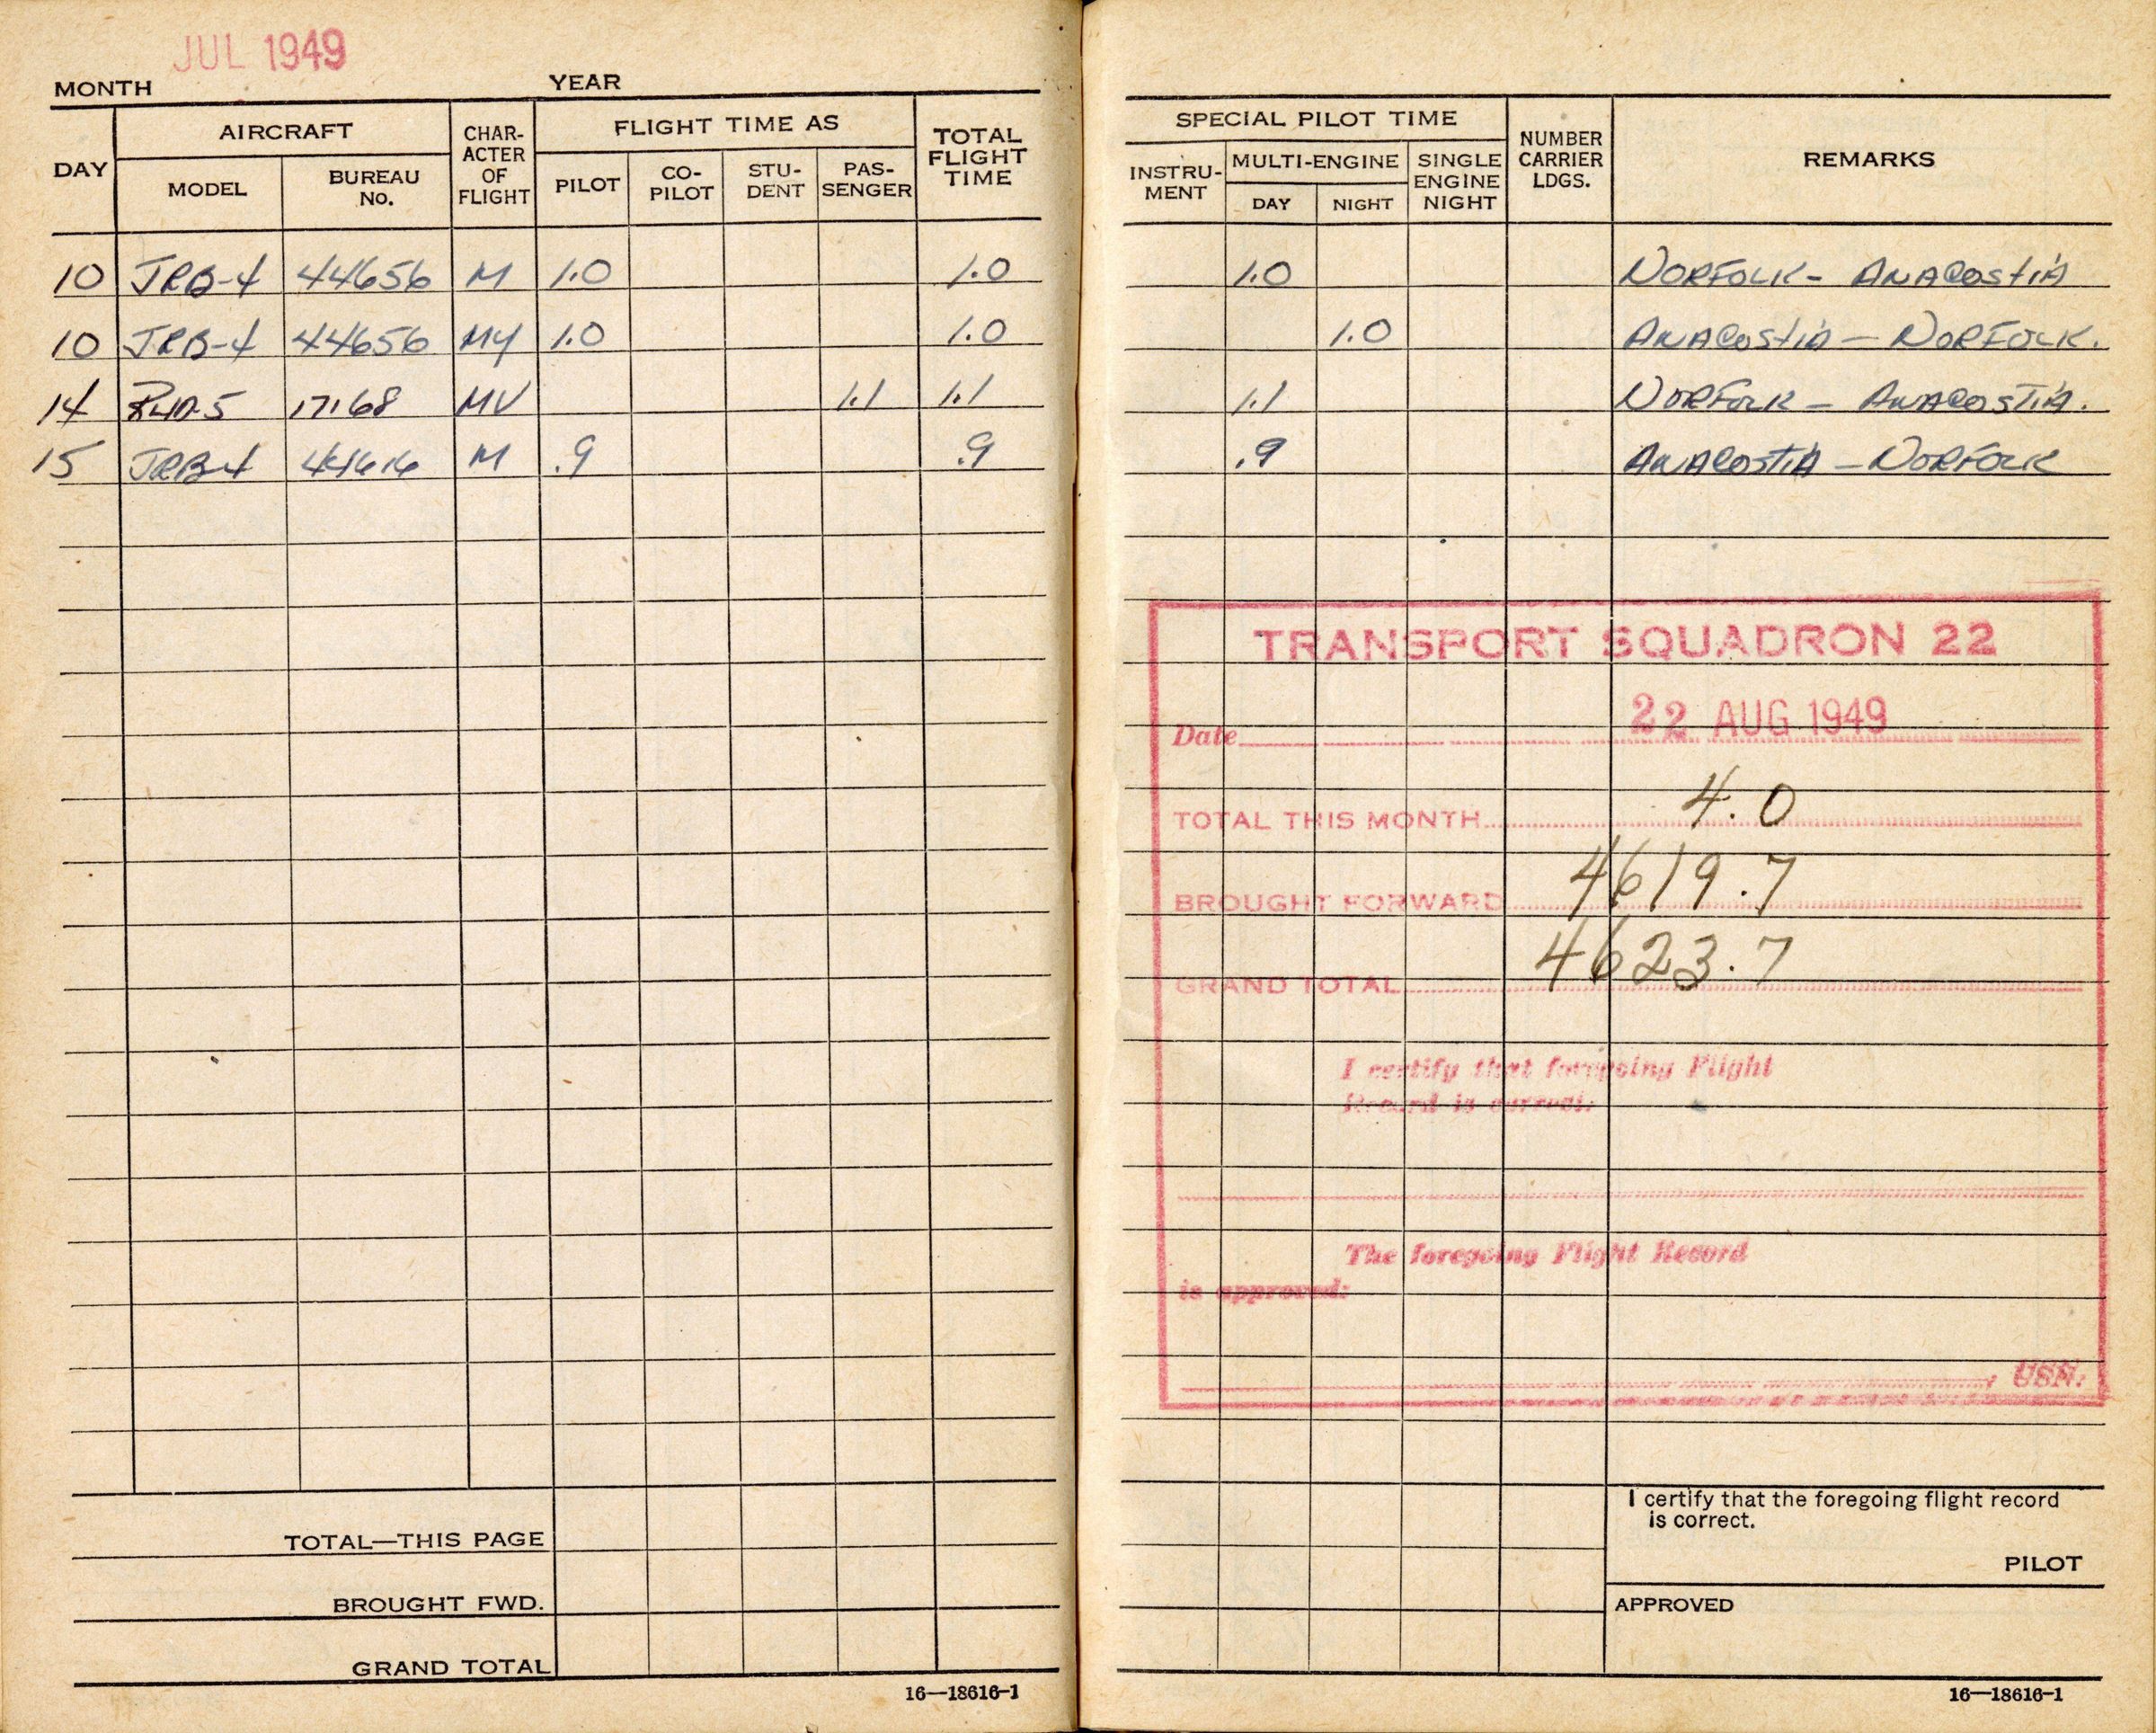 JUL 1949
MONTH YEAR
DAY AIRCRAFT CHAR-ACTER OF FLIGHT FLIGHT TIME AS TOTAL FLIGHT TIME
MODEL BUREAU No. PILOT CO-PILOT STU-DENT PAS-SENGER
10 JRB-4 44656 M 1.0 1.0
10 JRB-4 44656 MY 1.0 1.0
14 R4D-5 17168 MV 1.1 1.1
15 JRB-4 44616 M .9 .9
TOTAL—THIS PAGE
BROUGHT FWD.
GRAND TOTAL
16—18616-1
SPECIAL PILOT TIME NUMBER CARRIER LDGS. REMARKS
INSTRU-MENT MULTI-ENGINE SINGLE ENGINE NIGHT
DAY NIGHT
1.0 NORFOLK - ANACOSTIA
1.0 ANACOSTIA — NORFOLK.
1.1 NORFOLK — ANACOSTIA.
.9 ANACOSTIA — NORFOLK
TRANSPORT SQUADRON 22
Date 22 AUG 1949
TOTAL THIS MONTH 4.0
BROUGHT FORWARD 4619.7
GRAND TOTAL 4623.7
I certify that foregoing Flight
Record is correct:
The foregoing Flight Record
is approved:
, USN.
I certify that the foregoing flight record
is correct.
PILOT
APPROVED
16—18616-1